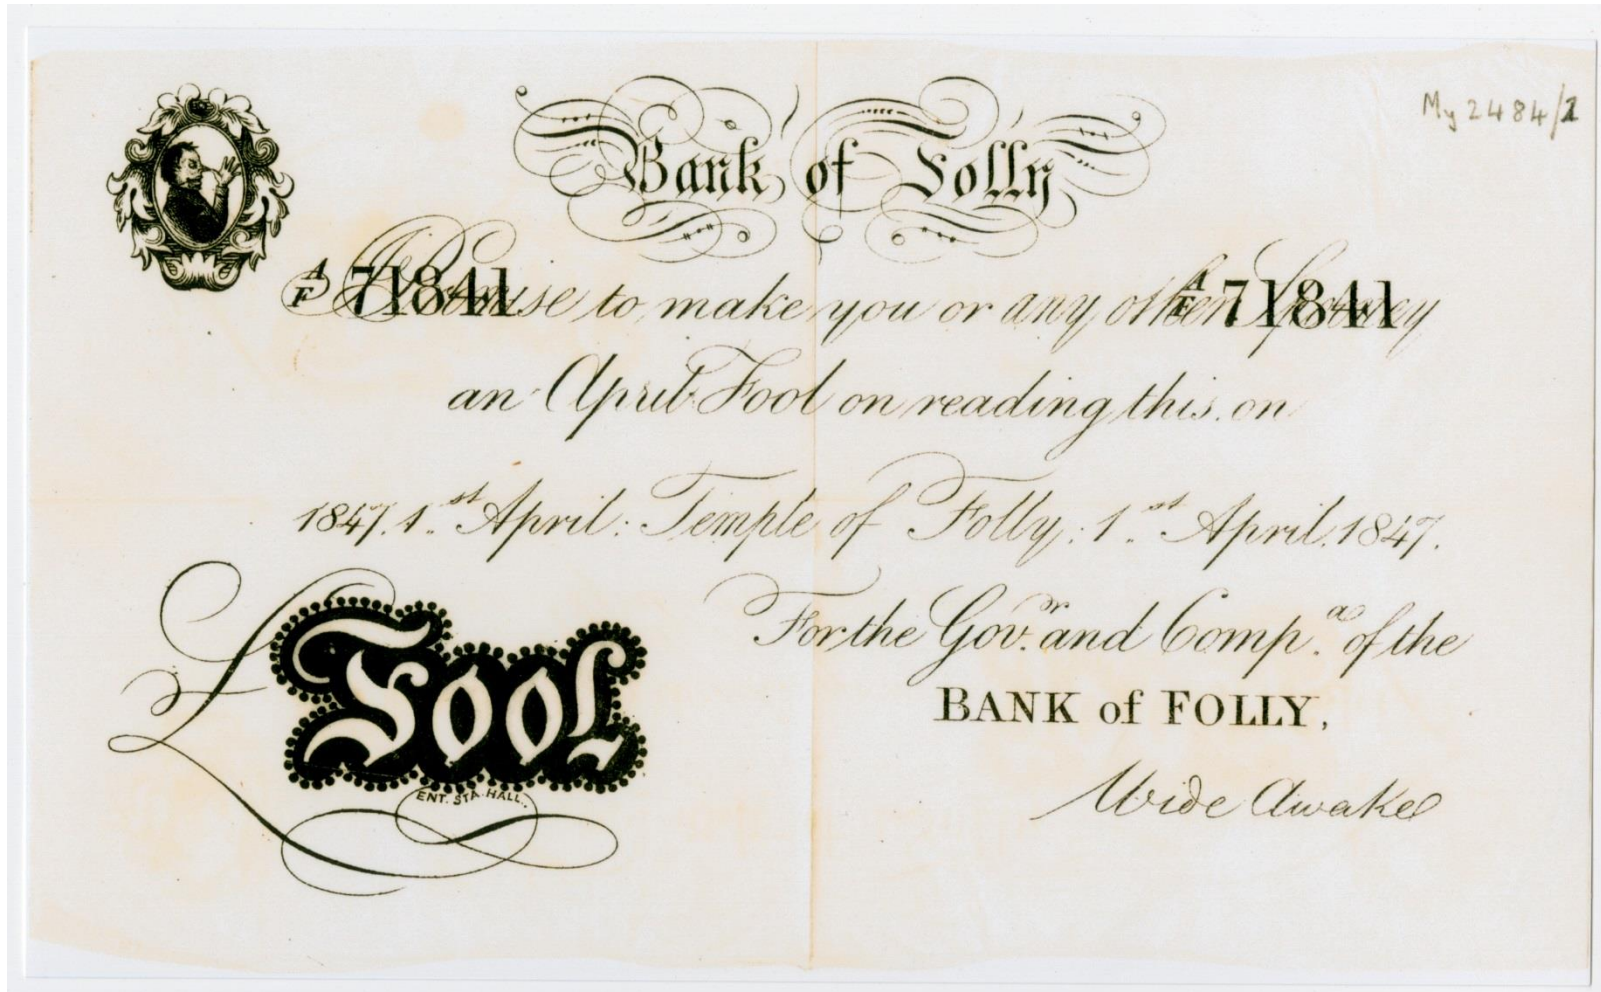 My 2484/1
Bank of Folly
A/F 71841 A/F 71841
I Promise to make you or any other Spooney
an April Fool on reading this on
1847. 1st April: Temple of Folly: 1st April. 1847.
For the Govr. and Compa. of the
BANK of FOLLY,
£ Fool
ENT. STA. HALL.
Wide Awake